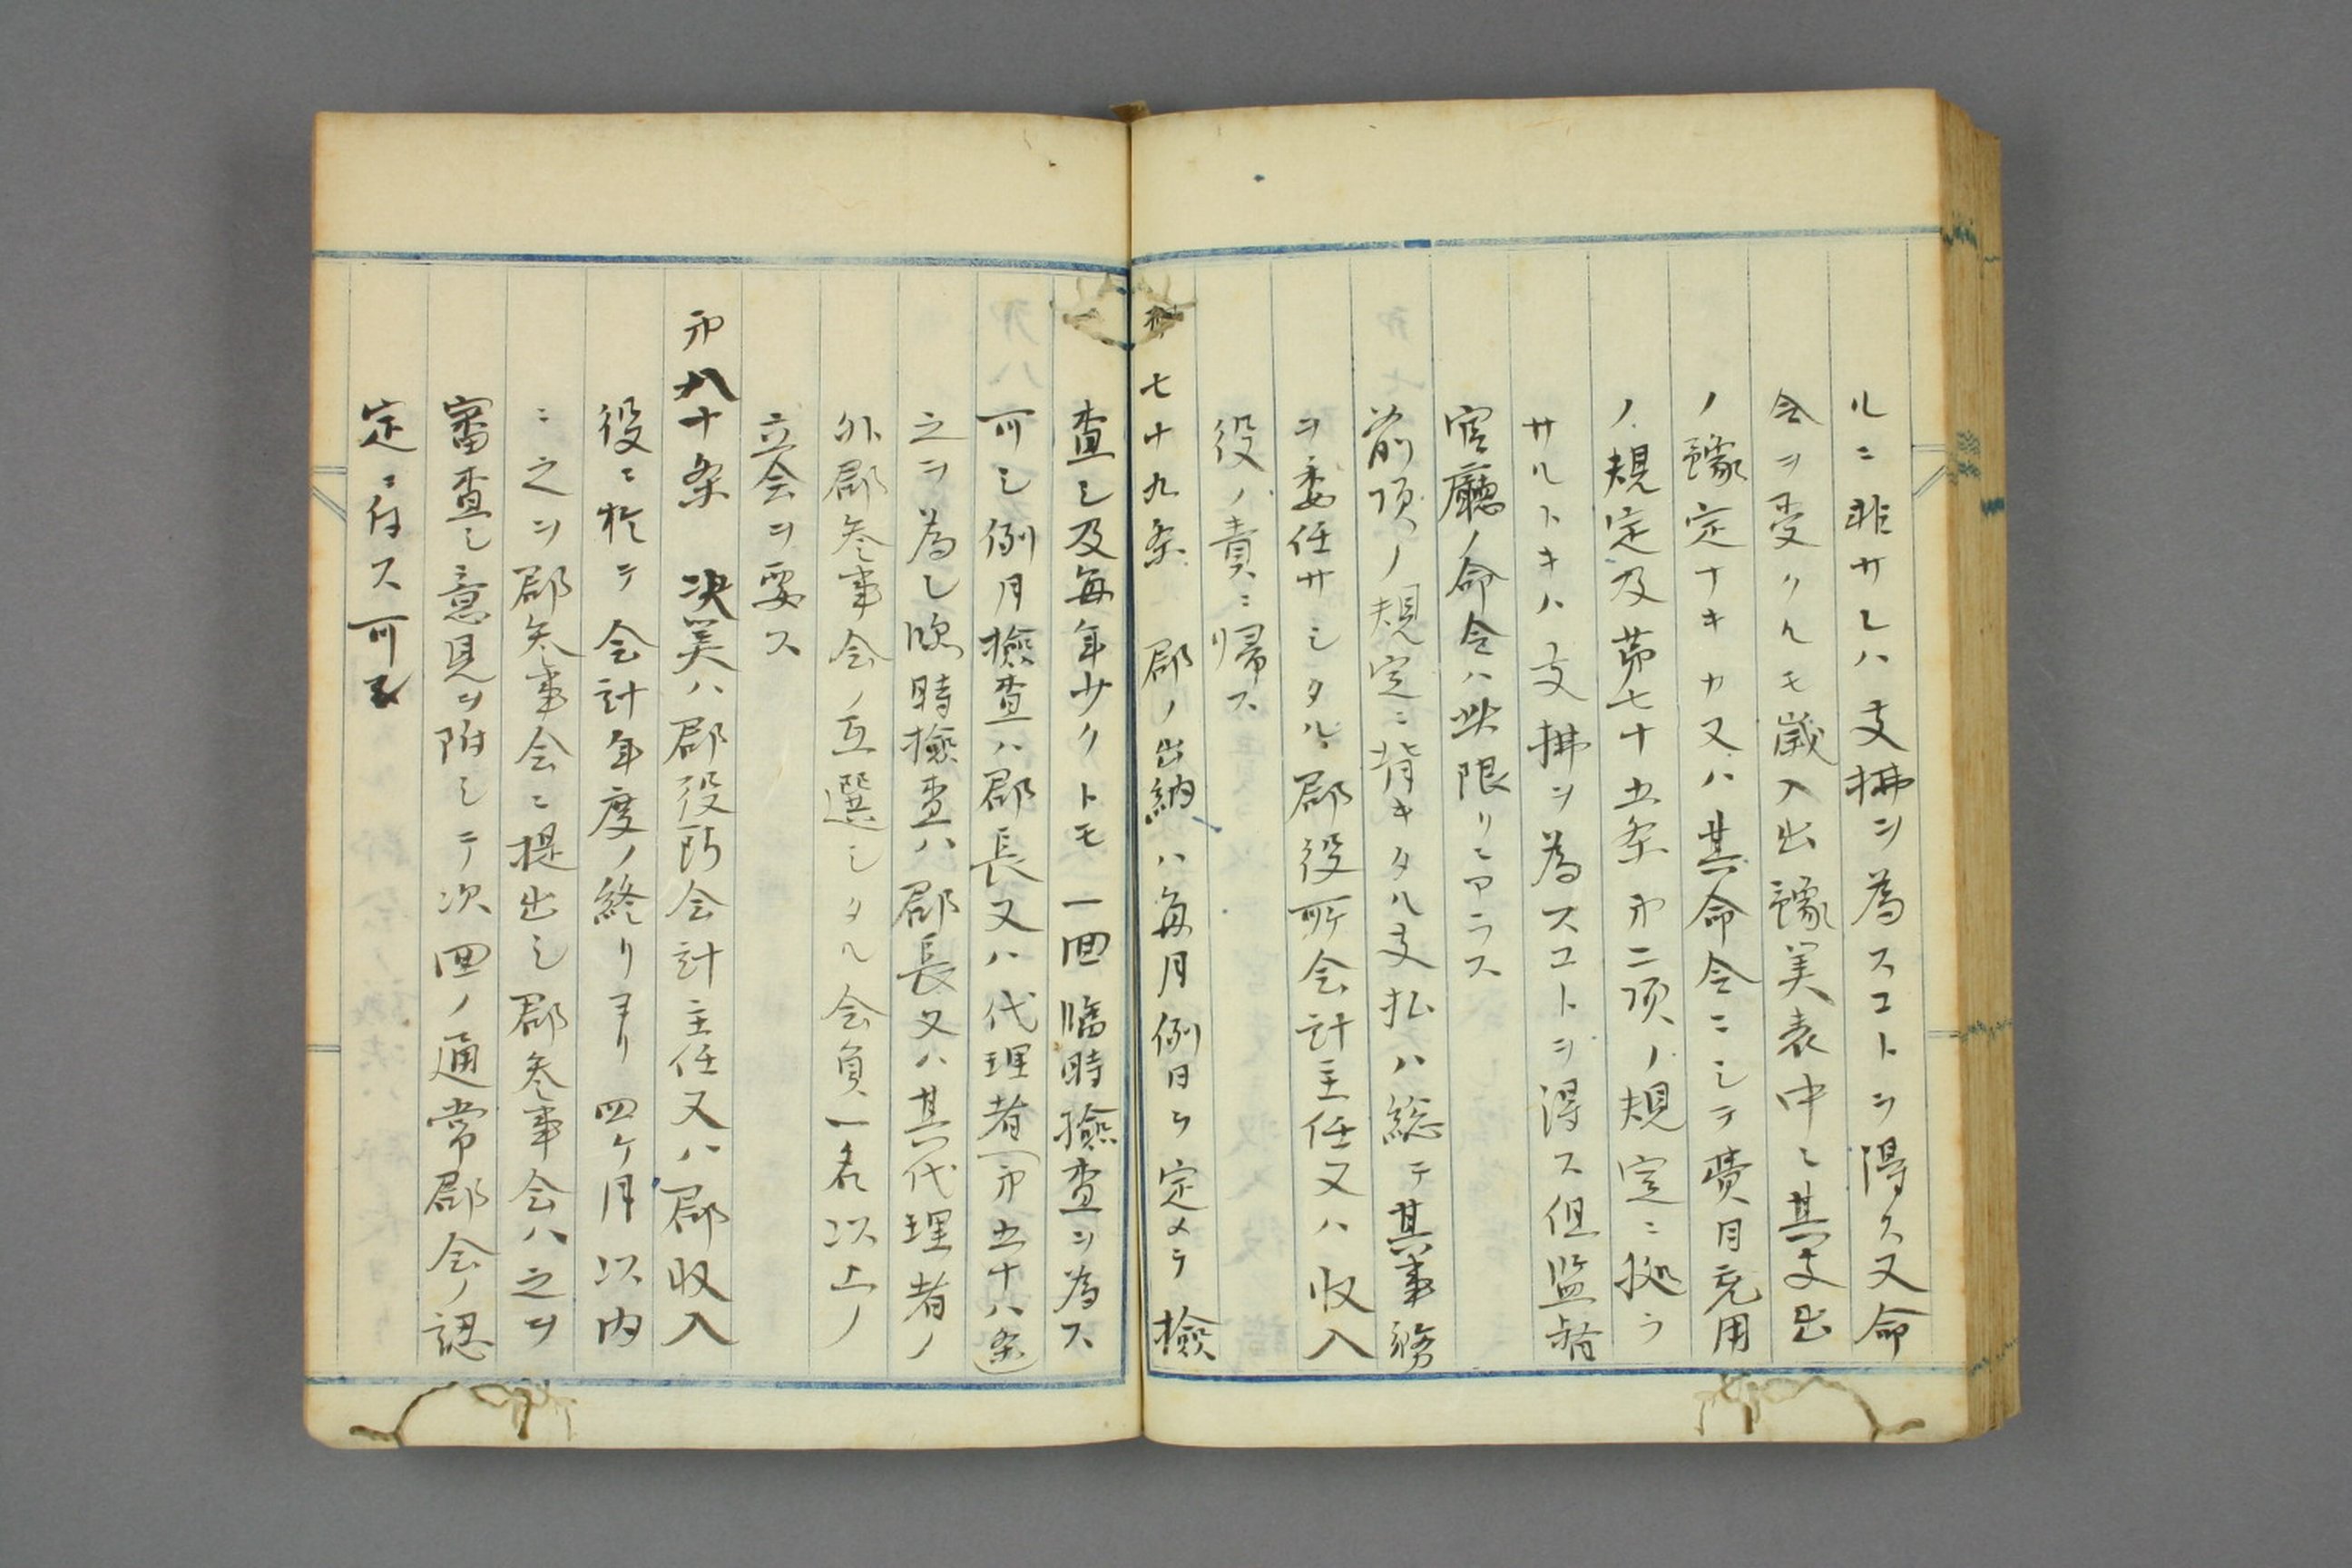 ルニ非サレハ支拂ヲ為スコトヲ得ス又命
令ヲ受クルモ歳入出豫算表中ニ其支出
ノ豫定ナキカ又ハ其命令ニシテ費目充用
ノ規定及第七十五条第二項ノ規定ニ拠ラ
サルトキハ支拂ヲ為スコトヲ得ス但監督
官廳ノ命令ハ此限リニアラス
前項ノ規定ニ背キタル支払ハ総テ其事務
ヲ委任サレタル郡役所会計主任又ハ収入
役ノ責ニ帰ス
第七十九条 郡ノ出納ハ毎月例日ヲ定メテ撿
査シ及毎年少クトモ一回臨時撿査ヲ為ス
可シ例月撿査ハ郡長又ハ代理者(第五十八条)
之ヲ為シ臨時撿査ハ郡長又ハ其代理者ノ
外郡参事会ノ互選シタル会員一名以上ノ
立会ヲ要ス
第八十条 決算ハ郡役所会計主任又ハ郡収入
役ニ於テ会計年度ノ終リヨリ四ケ月以内
ニ之ヲ郡参事会ニ提出シ郡参事会ハ之ヲ
審査シ意見ヲ附シテ次回ノ通常郡会ノ認
定ニ付ス可シ